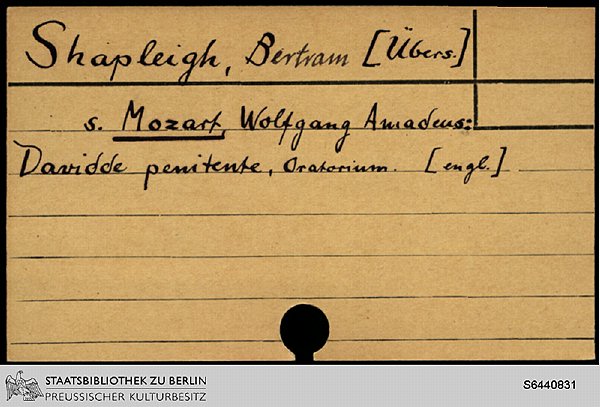 Shapleigh, Bertram [Übers.]
s. Mozart, Wolfgang Amadeus:
Davidde penitente, Oratorium. [engl.]
STAATSBIBLIOTHEK ZU BERLIN
PREUSSISCHER KULTURBESITZ
S6440831